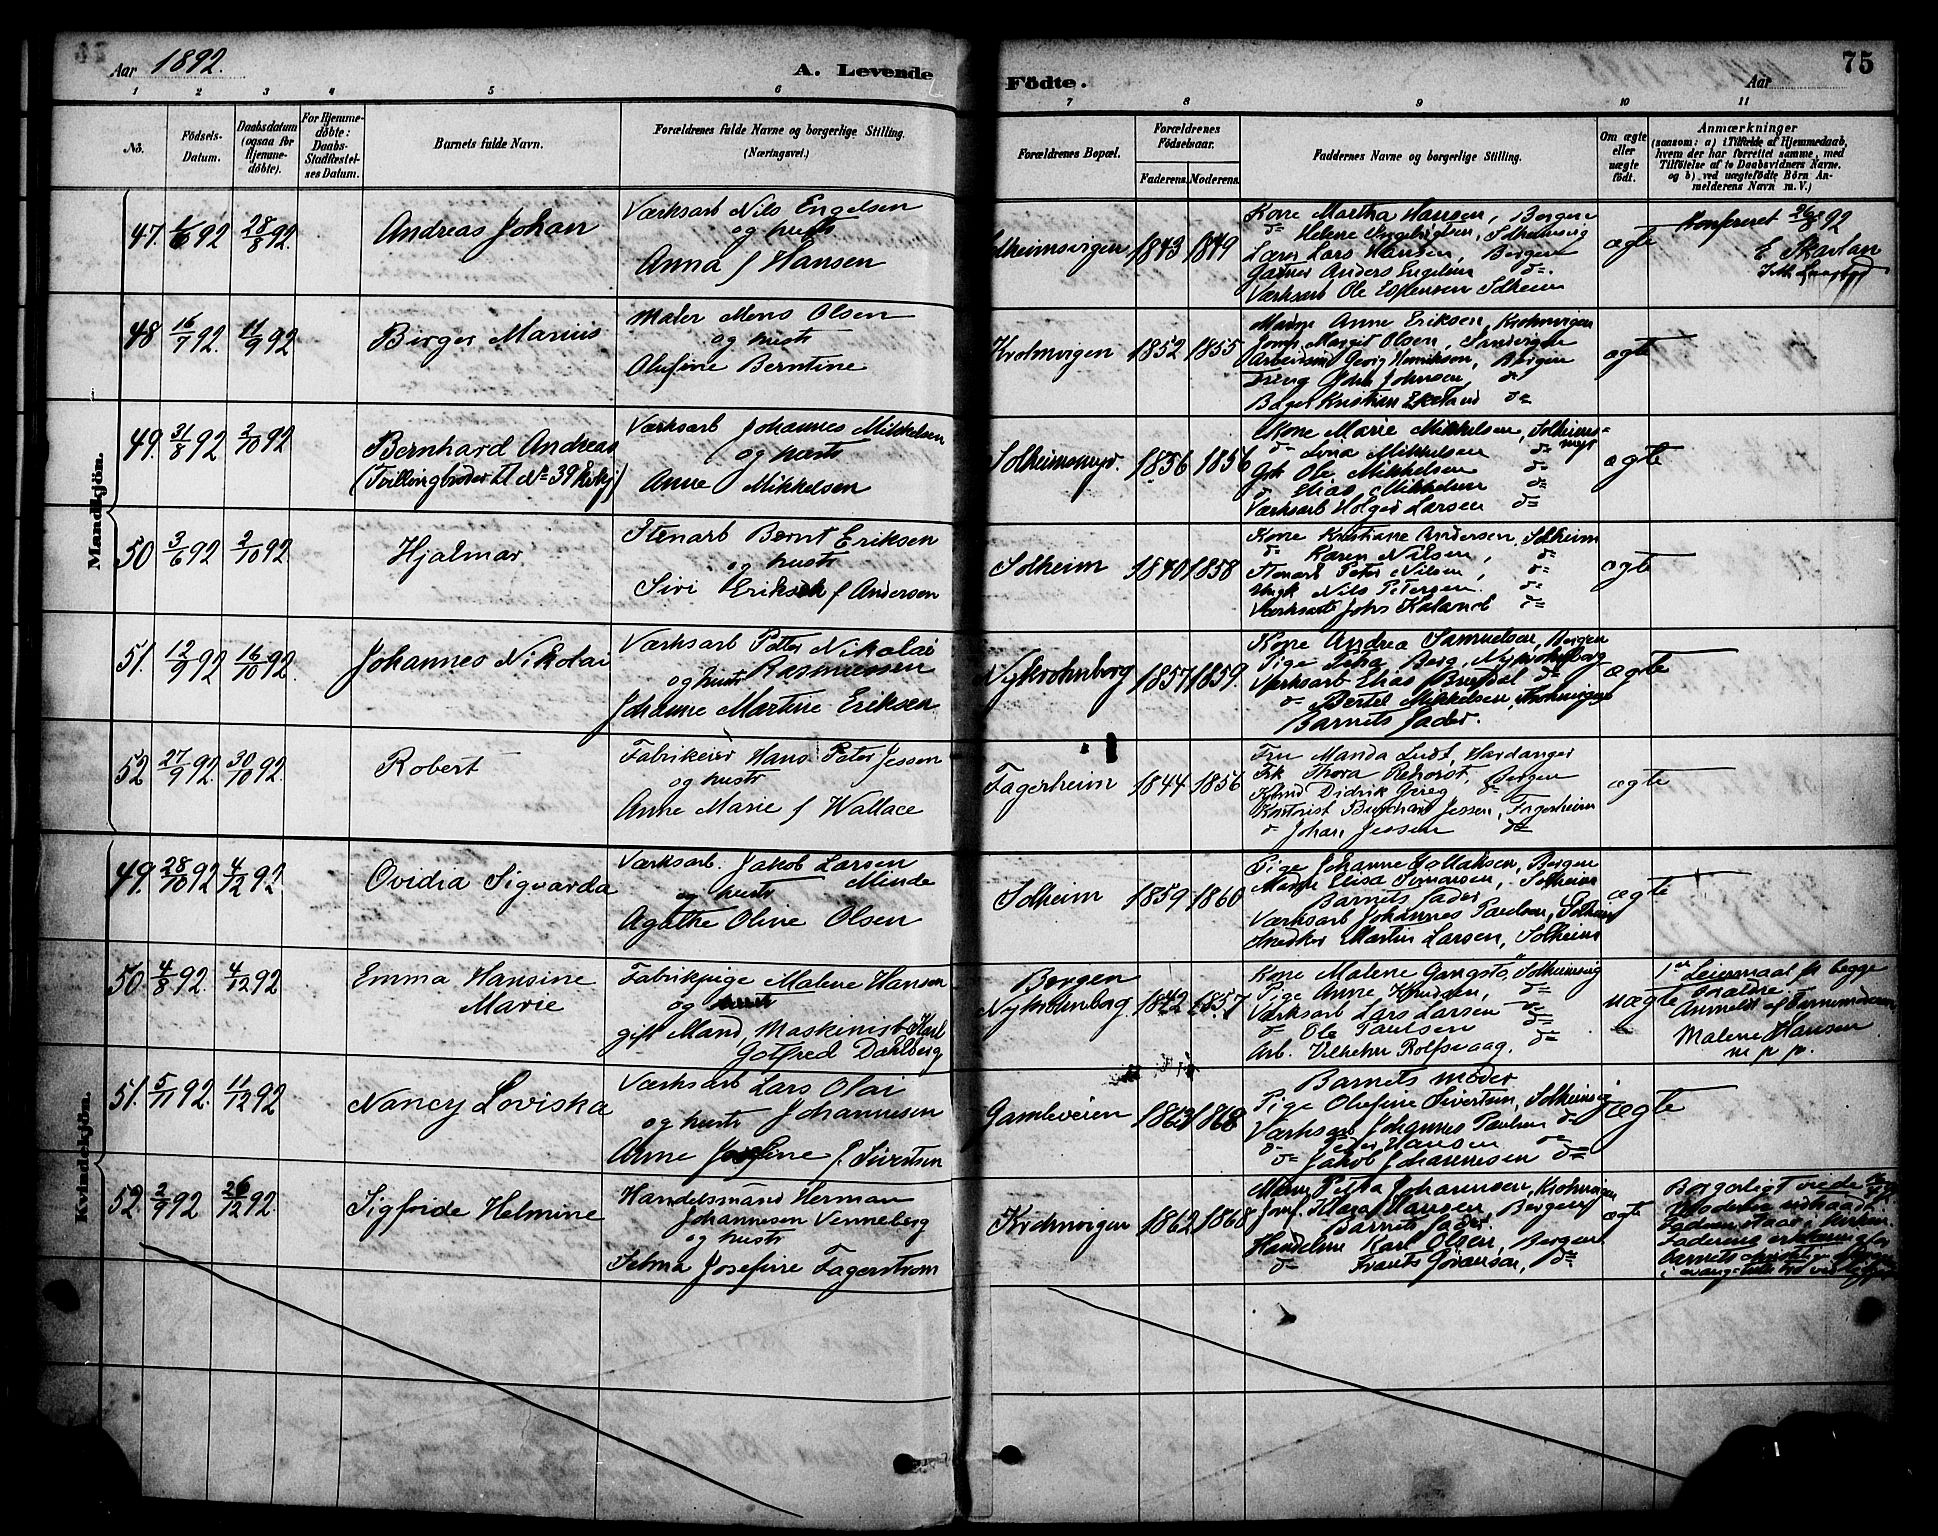 Aar 1892.
A. Levende
Födte.
Aar
75
1
2
3
4
5
6
7
8
9
10
11
No.
Födsels-
Datum.
Daabsdatum
(ogsaa for
Hjemme-
döbte).
For Hjemme-
döbte:
Daabs-
Stadfæstel-
ses Datum.
Barnets fulde Navn.
Forældrenes fulde Navne og borgerlige Stilling.
(Næringsvei.)
Forældrenes Bopæl.
Forældrenes
Födselsaar.
Faderens.
Moderens.
Faddernes Navne og borgerlige Stilling.
Om ægte
eller
uægte
födt.
Anmærkninger
(saasom: a) i Tilfælde af Hjemmedaab,
hvem der har forrettet samme, med
Tilföielse af to Daabsvidners Navne.
og b) ved uægtefödte Börn An-
melderens Navn m. V.)
Mandkjön.
47. 1/6 92 28/8 92. Andreas Johan
Værksarb Nils Engelsen
og hustr
Anna f Hansen
Solheimsvigen 1843 1849
Kone Martha Hansen, Bergen
d= Helene Ingebrigtsen, Solheimsvig
Lærer Lars Hansen, Bergen
Gartner Anders Engelsen d=.
Værksarb Ole Espensen Solheim
ægte
Konfereret 26/8 92
48 16/7 92. 11/9 92 Birger Marius
Maler Mons Olsen
og hustr
Olufine Berntine
Krohnvigen 1852 1855
Madm Anne Eriksen, Krohnvigen
Jomf. Margit Olsen, Sandvigen
Arbeidsm Georg Henriksen, Bergen
Johan Johnsen, d=
Bager Kristian Ekeland d=
ægte
49. 31/8 92 2/10 92 Bernhard Andreas
(Tvillingbroder til No 39 Kvkj)
Værksarb Johannes Mikkelsen
og hustr
Anne Mikkelsen
Solheimsmyr. 1856 1856
Kone Marie Mikkelsen, Solheims-
myr
d= Lina Mikkelsen d=
Gk Ole Mikkelsen d=
d= Elias Mikkelsen d=
Værksarb Holger Larsen d=
ægte
50 3/6 92 2/10 92. Hjalmar
Stenarb Bernt Eriksen
og hustr
Sivi Eriksen f Andersen
Solheim 1840 1858
Kone Kristiane Andersen, Solheim
d= Karen Nilsen, d=
Stenarb Peter Nilsen, d=
Ungk Nils Petersen. d=
Værksarb Johs Kaland d=
ægte
51. 12/9 92 16/10 92. Johannes Nikolai
Værksarb Petter Nikolai
og hustr Rasmussen
Johanne Martine Eriksen
Nykrohnborg 1857 1859.
Kone Andrea Samuelsen, Bergen
Pige Berg, Nykrohnborg
Værksarb Elias d=
d= Bertel Mikkelsen, Krohnvigen
Barnets Fader.
ægte
52 27/9 92. 30/10 92. Robert
Fabrikeier Hans Peter Jessen
og hustr
Anne Marie f Wallace
Fagerheim 1844 1856
Fru Manda Ludt, Hardanger
Frk Thora Rehorst, Bergen
Didrik d=
Kontorist Burchard Jessen, Fagerheim
d= Johan Jessen d=
ægte
Kvindekjön.
49. 28/10 92 4/12 92. Ovidia Sigvarda
Værksarb. Jakob Larsen
og hustr Minde
Agathe Oline Olsen
Solheim 1859 1860
Pige Johanne Bergen
Madm Elisa Solheim
Barnets Fader
Værksarb Johannes Paulsen, Solheim
Snedker Martin Larsen, Solheim
ægte
50. 4/8 92. 4/12 92 Emma Hansine
Marie
Fabrikpige Malene Hansen
og
gift Mand, Maskinist Karl
Gotfred Dahlberg
Bergen
Nykrohnborg 1842 1857
Kone Malene Solheimsvig
Pige Anne Knudsen, d=
Værksarb Lars Larsen d=
d= Ole Paulsen d=
Arb. Vilhelm Rolfsvaag. d=
uægte
1ste Leiermaal for begge
Forældre
Anmeldt af Barnemoderen
Malene Hansen
m p p.
51. 5/11 92. 11/12 92 Nancy Loviska
Værksarb Lars Olai
og hustr Johannesen
Anne Josefine f. Sivertsen
Gamleveien 1863 1868
Barnets moder
Pige Olufine Sivertsen, Solheimsvig
Værksarb Johannes Paulsen d=
d= Peder Hansen d=
d= Jakob Johannesen d=
ægte
52. 2/9 92 26/12 92. Sigfride Helmine
Handelsmand Herman
Johannesen Venneberg
og hustr
Selma Josefine Fagerstrøm
Krohnvigen 1862 1868
Madm Petra Johannesen, Krohnvigen
Jomf. Klara Hansen, Bergen
Barnets Fader
Handelsm Karl Olsen, Bergen
d= Frants Göransen, d=
ægte
Borgerligt viede
Moderen udtraadt.
Faderen staar i Kirken.
Faderens erklæring for
Barnets christelige